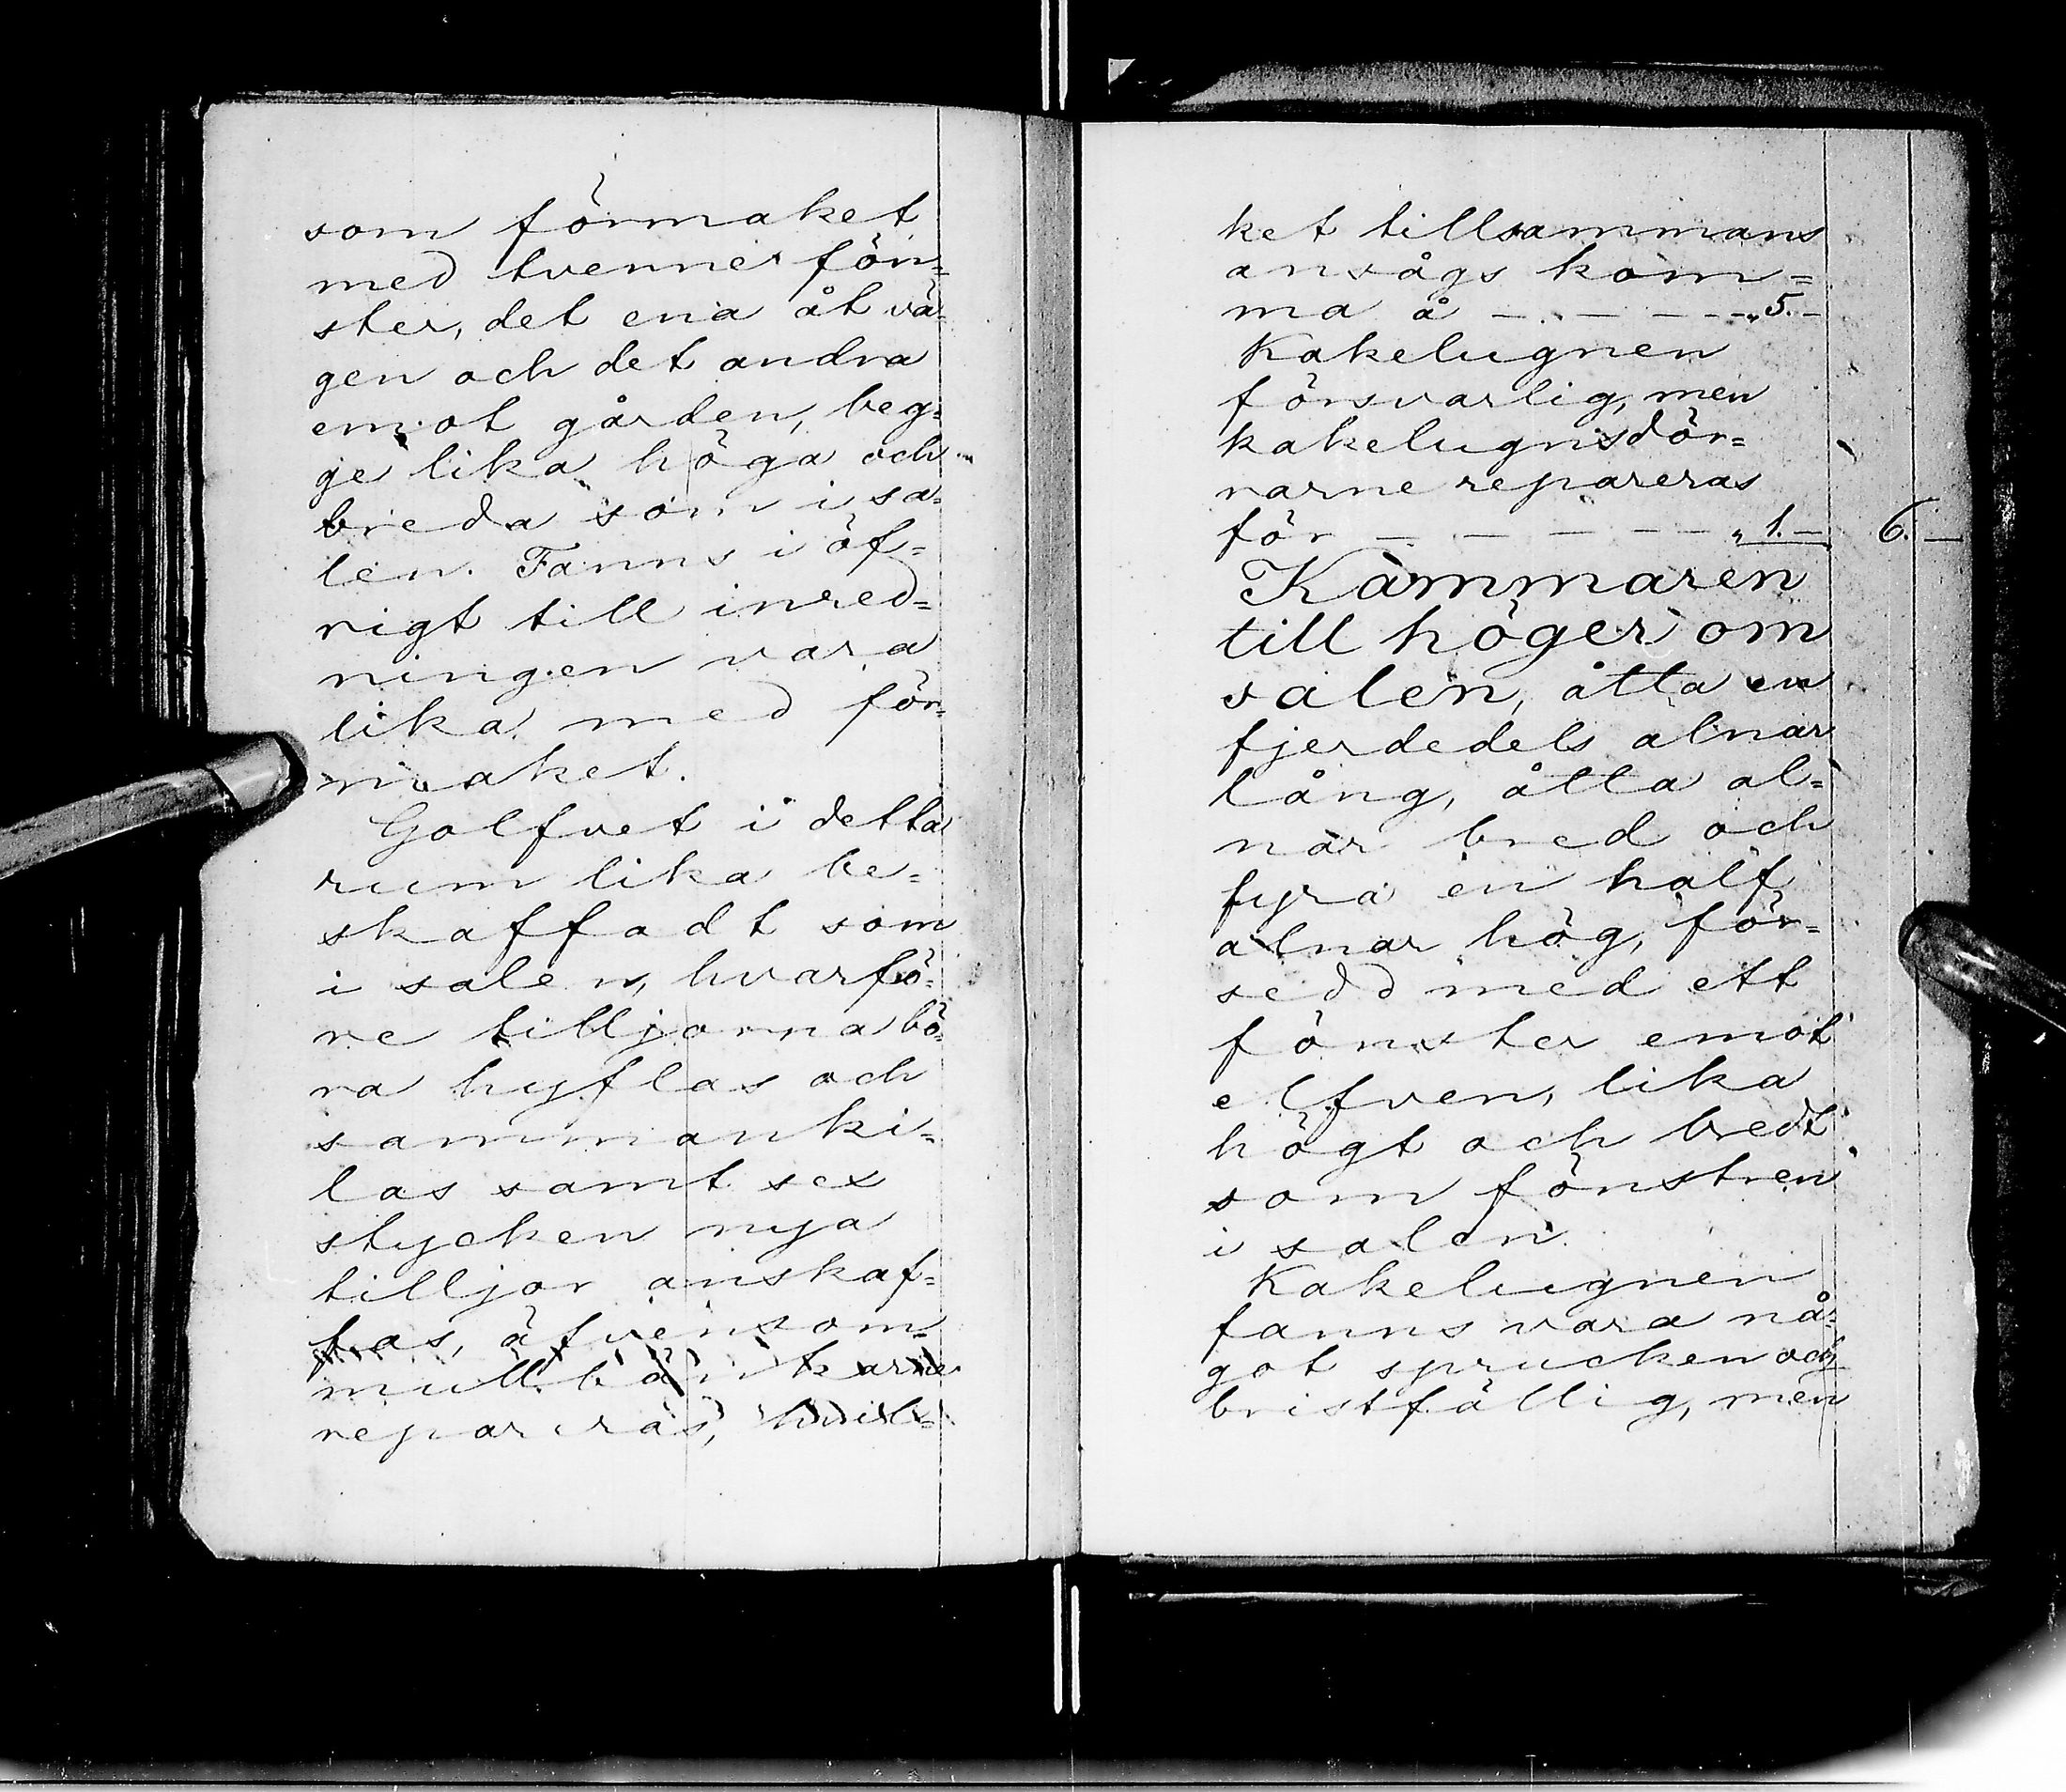 som förmaket
med tvenne fön=
ster, det ena åt vä=
gen och det andra
emot gården, beg=
ge lika höga och
breda som i sa=
len. Fanns i öf=
rigt till inred=
ningen vara
lika med för=
maket.
Golfvet i detta
rum lika be=
skaffadt som
i salen, hvarfö=
re tilljorna bö=
ra hyflas och
sammanki=
las samt sex
stycken nya
tilljor anskaf=
fas, äfvensom
mullbänkarne
repareras, hvil=
ket tillsammans
ansågs kom=
ma å — — — — „ 5. —
Kakelugnen
försvarlig, men
kakelugnsdör=
rarne repareras
för — — — — — „ 1. — 6. —
Kammaren
till höger om
salen, åtta en
fjerdedels alnar
lång, åtta al=
nar bred och
fyra en half
alnar hög, för=
sedd med ett
fönster emot
elfven, lika
högt och bredt
som fönstren
i salen.
Kakelugnen
fanns vara nå=
got sprucken och
bristfällig, men